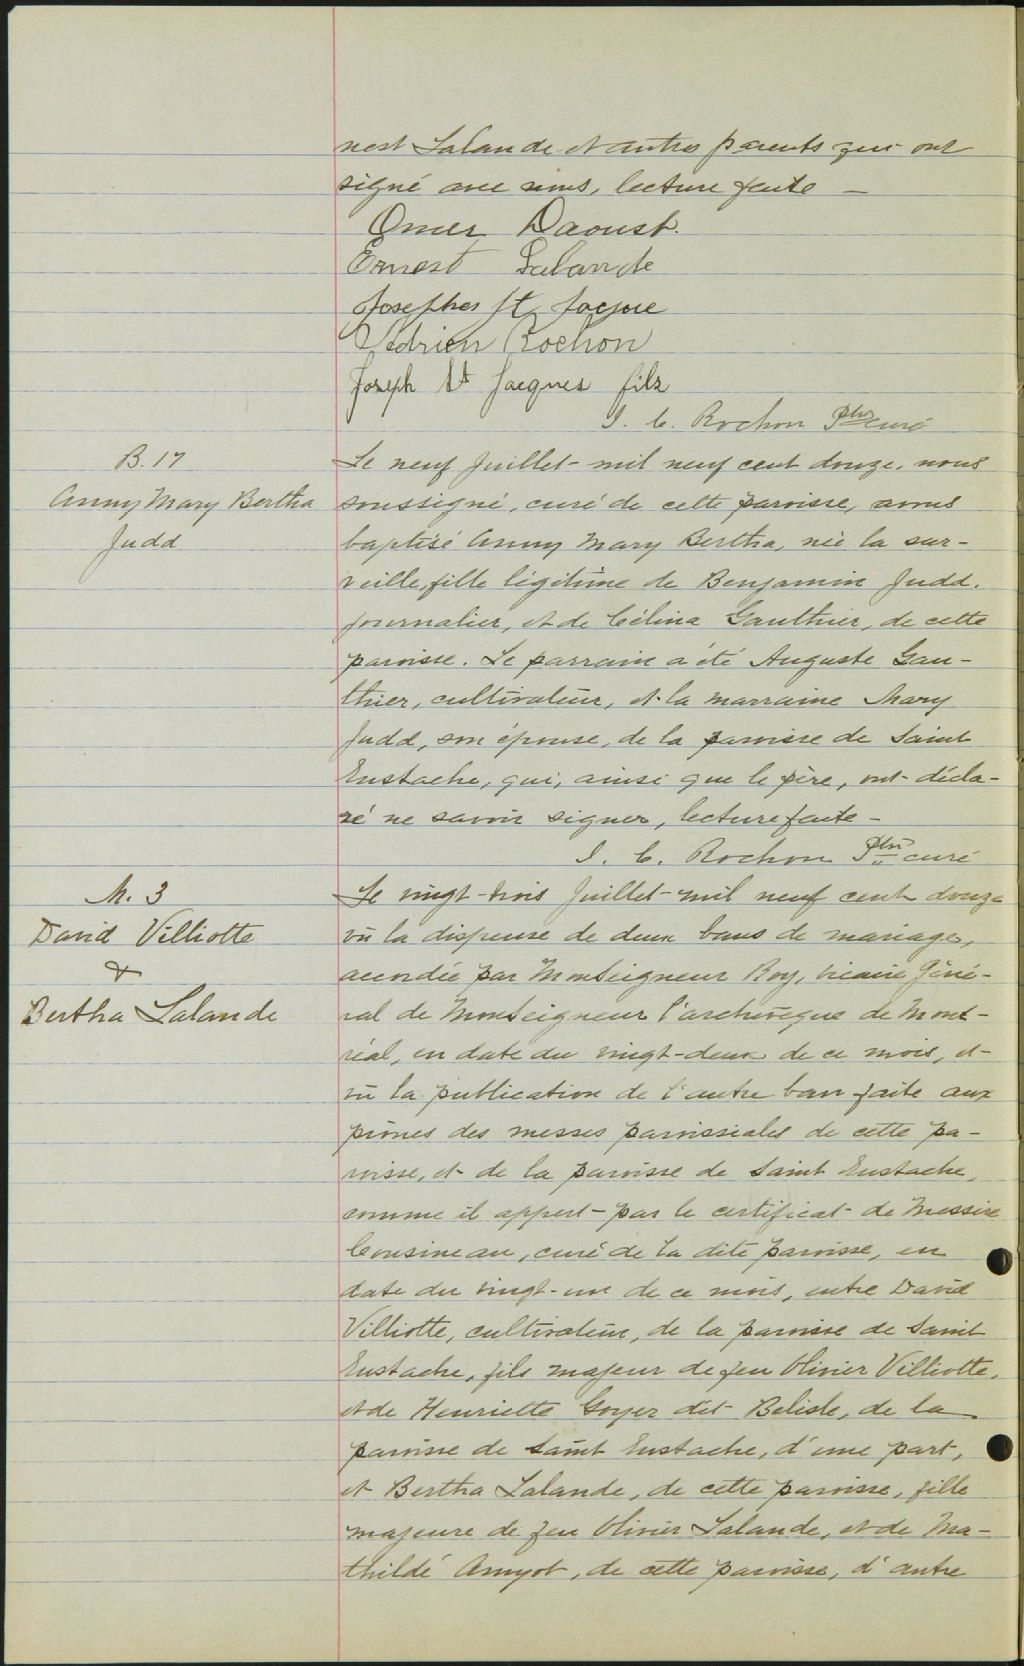 nest Lalande et autres parents qui ont
signé avec nous, lecture faite —
Omer Daoust.
Ernest Lalande
Josephes St Jacque
Adrien Rochon
Joseph St Jacques fils
J. C. Rochon Ptre curé
B. 17
Anny Mary Bertha
Judd
Le neuf Juillet mil neuf cent douze, nous
soussigné, curé de cette paroisse, avons
baptisé Anny Mary Bertha, née la sur-
veille, fille légitime de Benjamin Judd,
journalier, et de Célina Gauthier, de cette
paroisse. Le parrain a été Auguste Gau-
thier, cultivateur, et la marraine Mary
Judd, son épouse, de la paroisse de Saint
Eustache, qui, ainsi que le père, ont décla-
ré ne savoir signer, lecture faite —
J. C. Rochon Ptre curé
M. 3
David Villiotte
&
Bertha Lalande
Le vingt-trois Juillet mil neuf cent douze
vû la dispense de deux bans de mariage,
accordée par Monseigneur Roy, vicaire Géné-
ral de Monseigneur l'archevêque de Mont-
réal, en date du vingt-deux de ce mois, et
vû la publication de l'autre ban faite aux
prônes des messes paroissiales de cette pa-
roisse, et de la paroisse de Saint Eustache,
comme il appert par le certificat de Messire
Cousineau, curé de la dite paroisse, en
date du vingt-un de ce mois, entre David
Villiotte, cultivateur, de la paroisse de Saint
Eustache, fils majeur de feu Olivier Villiotte,
et de Henriette Goyer dit Belisle, de la
paroisse de Saint Eustache, d'une part,
et Bertha Lalande, de cette paroisse, fille
majeure de feu Olivier Lalande, et de Ma-
thildé Amyot, de cette paroisse, d'autre